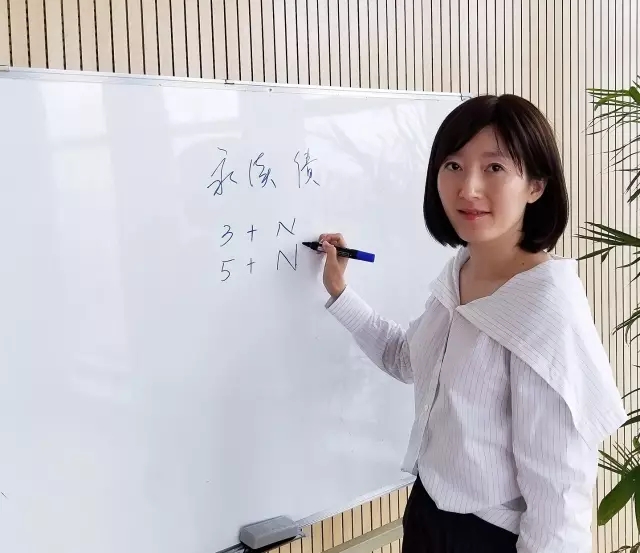 永续债
3 + N
5 + N